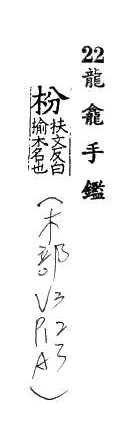 22龍龕手鑑
枌扶文反白榆木名也
(木部V3P123A)